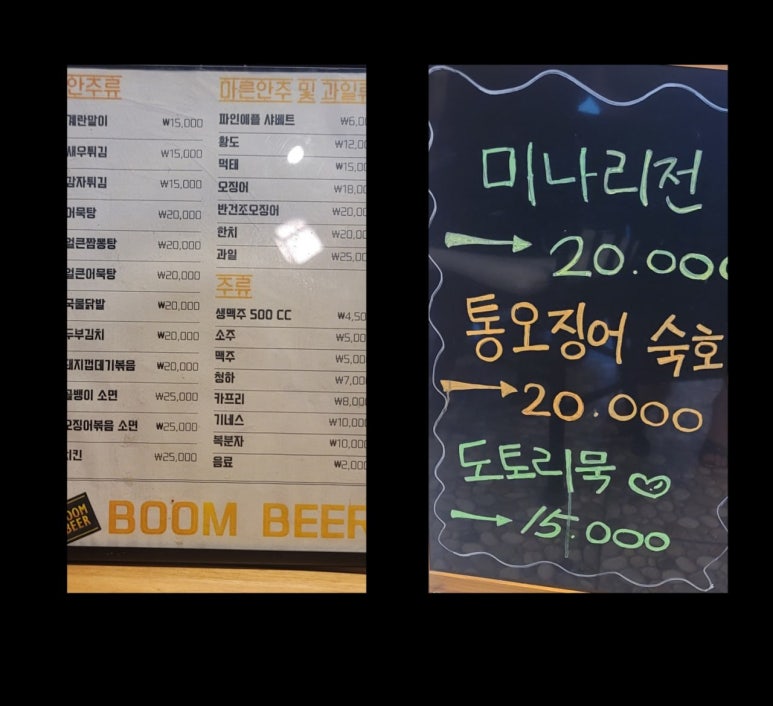 안주류
계란말이 ₩15,000
새우튀김 ₩15,000
감자튀김 ₩15,000
어묵탕 ₩20,000
얼큰짬뽕탕 ₩20,000
얼큰어묵탕 ₩20,000
국물닭발 ₩20,000
두부김치 ₩20,000
돼지껍데기볶음 ₩20,000
골뱅이 소면 ₩25,000
오징어볶음 소면 ₩25,000
치킨 ₩25,000
마른안주 및 과일류
파인애플 샤베트 ₩6,0
황도 ₩12,0
먹태 ₩15,0
오징어 ₩18,0
반건조오징어 ₩20,0
한치 ₩20,0
과일 ₩25,0
주류
생맥주 500 CC ₩4,50
소주 ₩5,00
맥주 ₩5,00
청하 ₩7,00
카프리 ₩8,00
기네스 ₩10,00
복분자 ₩10,00
음료 ₩2,00
BOOM BEER
BOOM BEER
미나리전
20.000
통오징어 숙회
20.000
도토리묵
15.000